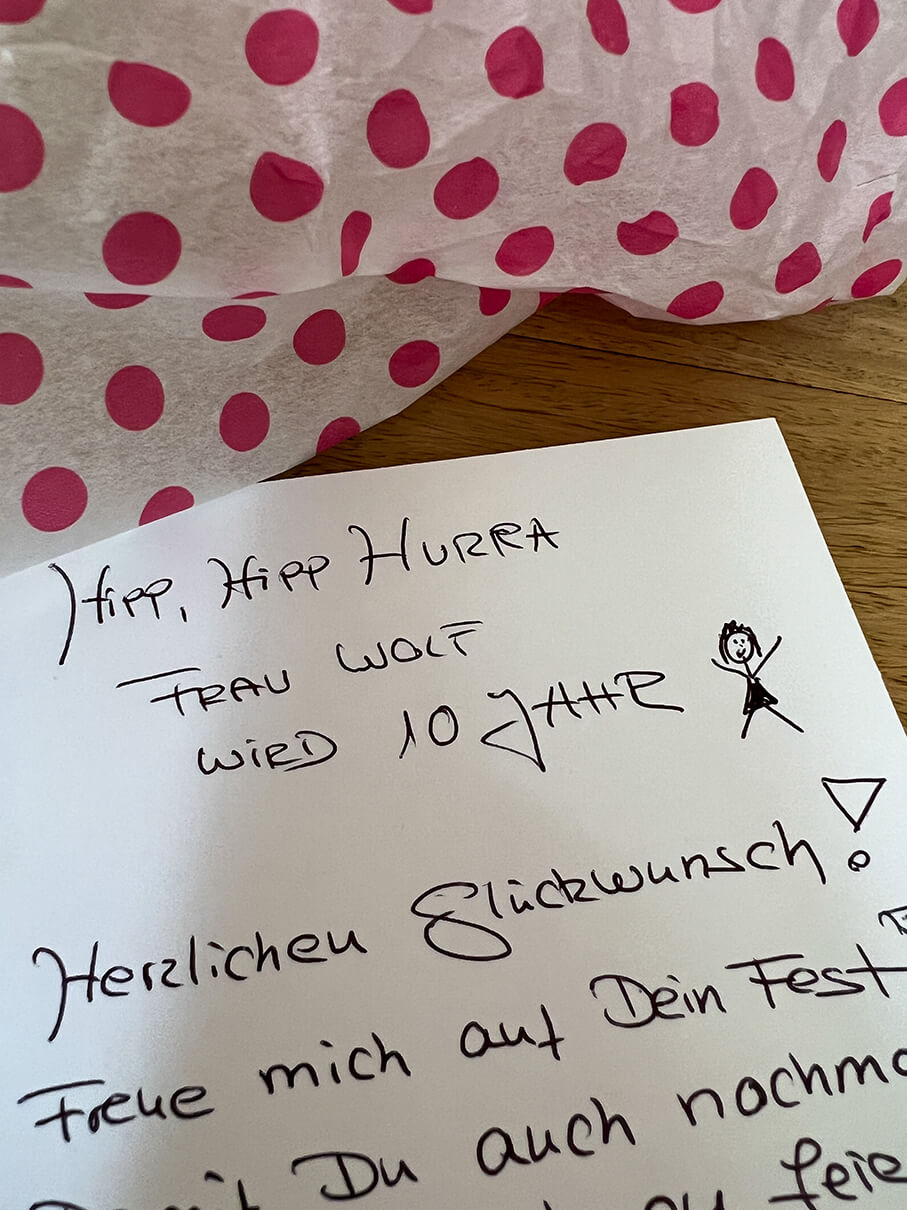 Hipp, Hipp Hurra
Frau Wolf
wird 10 Jahr
Herzlichen Glückwunsch!
Freue mich auf Dein Fest
Du auch nochma
feie